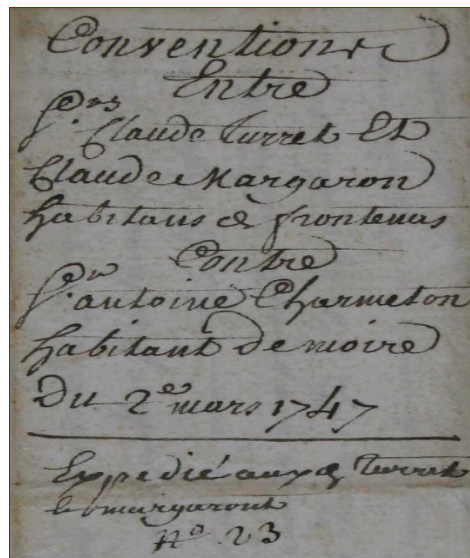 Conventions
Entre
S.rs Claude Turret Et
Claude Margaron
habitans a frontenas
Contre
S.r antoine Charmeton
habitant de moire
Du 2e mars 1747
Expedié aux d. Turret
et margaront
No. 23